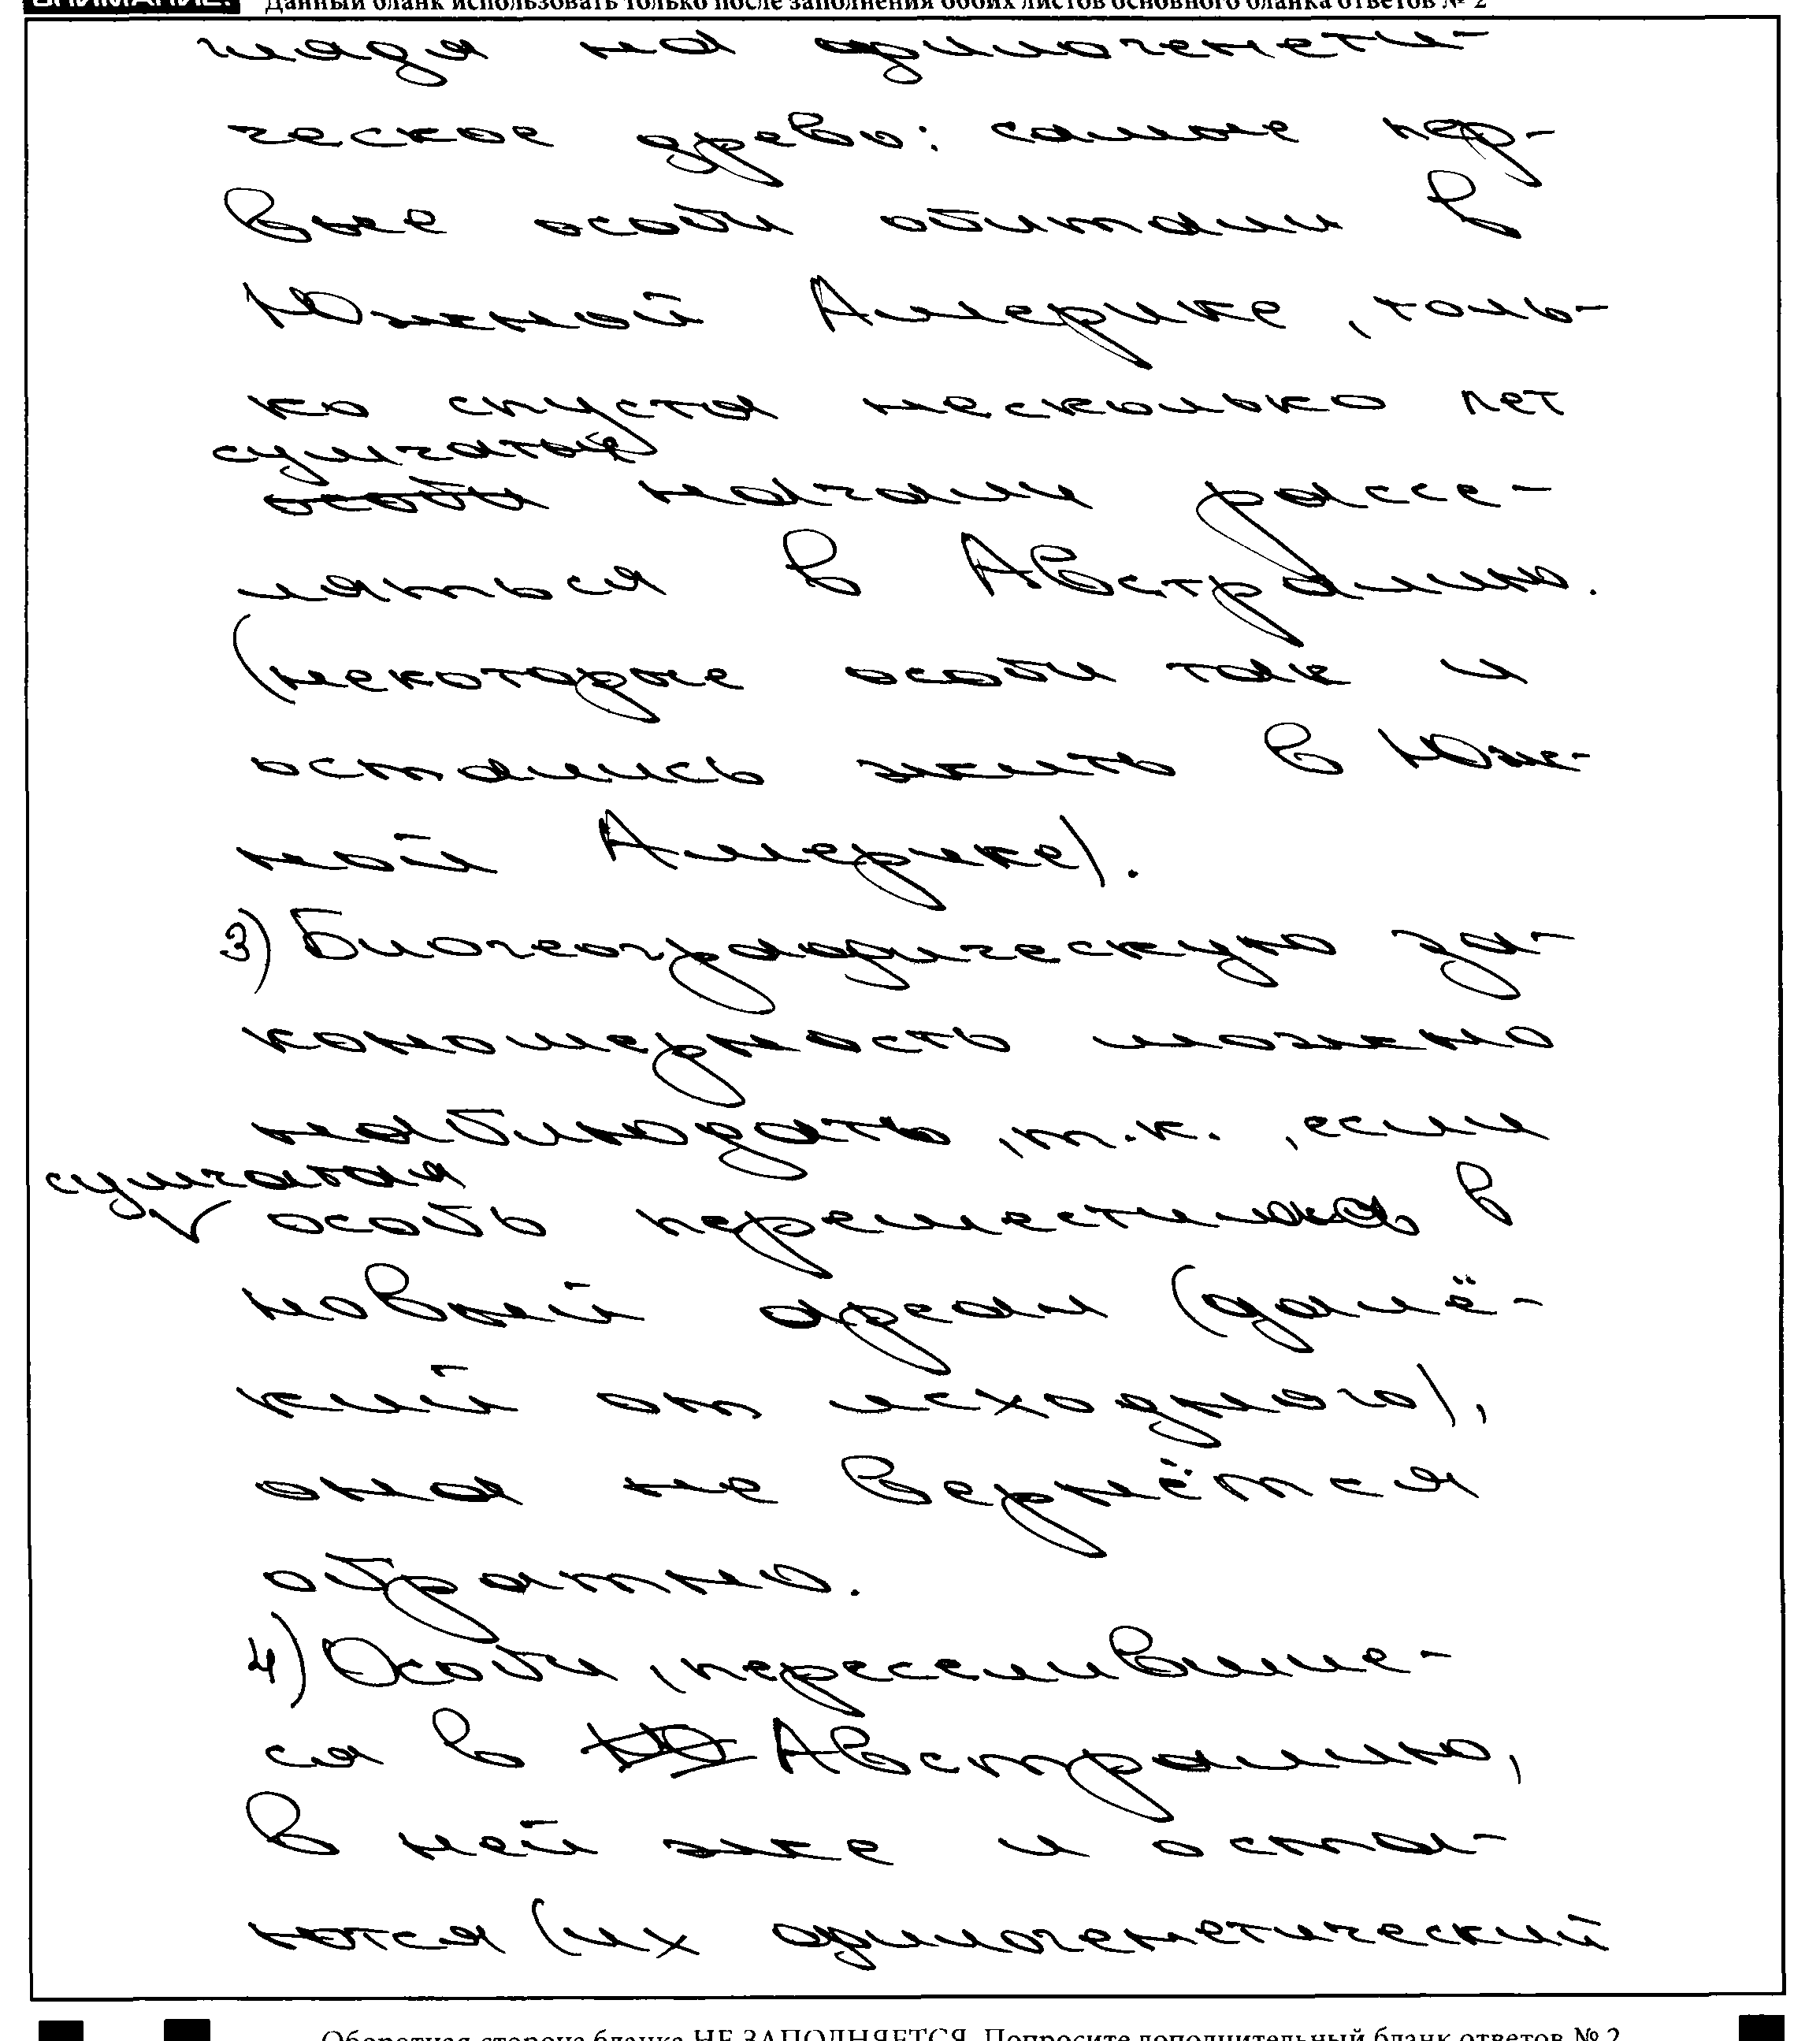 ВНИМАНИЕ! Данный бланк использовать только после заполнения обоих листов основного бланка ответов № 2
глядя на филогенети-
ческое древо: самые пер-
вые особи обитали в
Южной Америке, толь-
ко спустя несколько лет
сумчатые
особи начали рассе-
ляться в Австралию.
(некоторые особи так и
остались жить в Юж-
ной Америке).
3) Биогеографическую за-
кономерность можно
наблюдать, т.к., если
сумчатая
особь переместилась в
новый ареал (далё-
кий от исходного),
она не вернётся
обратно.
4) Особи, переселивше-
ся в Австралию,
в ней же и оста-
ются (их филогенетический
Оборотная сторона бланка НЕ ЗАПОЛНЯЕТСЯ. Попросите дополнительный бланк ответов № 2